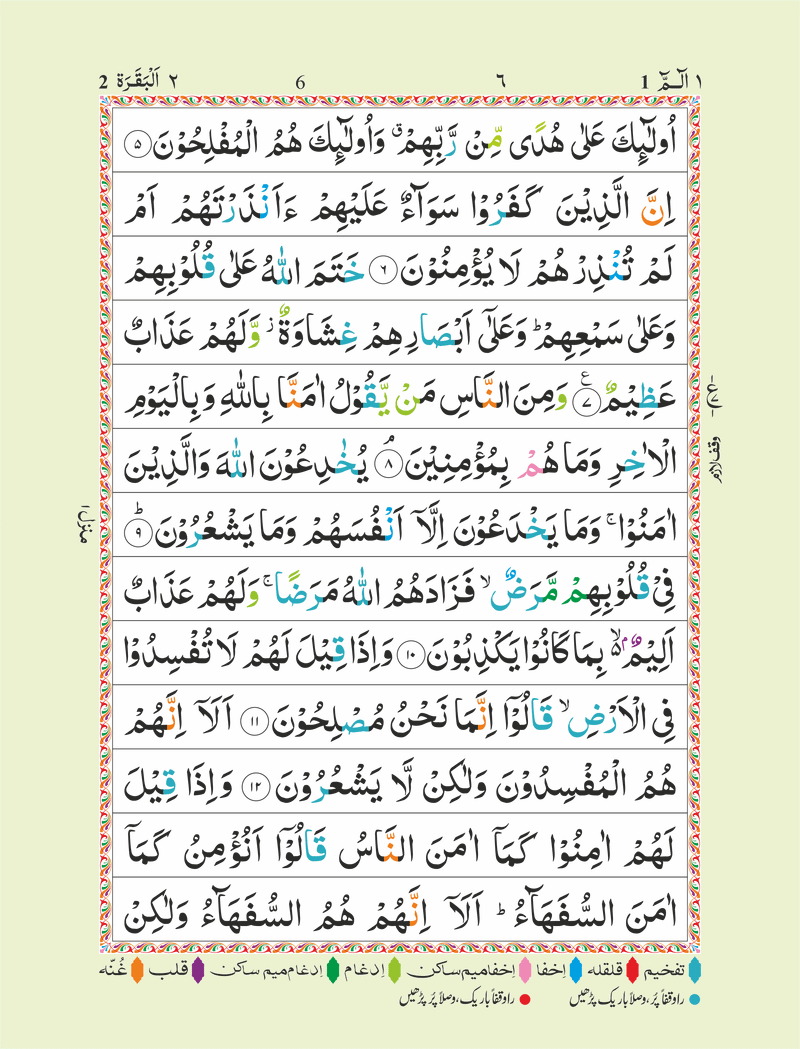 ١ الٓـمّٓ 1 ٦ 6 ٢ اَلْبَقَرَة 2
اُولٰٓئِكَ عَلٰى هُدًى مِّنْ رَّبِّهِمْ ۗ وَاُولٰٓئِكَ هُمُ الْمُفْلِحُوْنَ ۝۵
اِنَّ الَّذِيْنَ كَفَرُوْا سَوَآءٌ عَلَيْهِمْ ءَاَنْذَرْتَهُمْ اَمْ
لَمْ تُنْذِرْهُمْ لَا يُؤْمِنُوْنَ ۝۶ خَتَمَ اللّٰهُ عَلٰى قُلُوْبِهِمْ
وَعَلٰى سَمْعِهِمْ ؕ وَعَلٰٓى اَبْصَارِهِمْ غِشَاوَةٌ ؗ وَّلَهُمْ عَذَابٌ
عَظِيْمٌ ۝۷ ع وَمِنَ النَّاسِ مَنْ يَّقُوْلُ اٰمَنَّا بِاللّٰهِ وَبِالْيَوْمِ
الْاٰخِرِ وَمَا هُمْ بِمُؤْمِنِيْنَ ۝۸ۘ يُخٰدِعُوْنَ اللّٰهَ وَالَّذِيْنَ
اٰمَنُوْا ۚ وَمَا يَخْدَعُوْنَ اِلَّاۤ اَنْفُسَهُمْ وَمَا يَشْعُرُوْنَ ۝۹ؕ
فِيْ قُلُوْبِهِمْ مَّرَضٌ ۙ فَزَادَهُمُ اللّٰهُ مَرَضًا ۚ وَلَهُمْ عَذَابٌ
اَلِيْمٌۢ ۙ۬ بِمَا كَانُوْا يَكْذِبُوْنَ ۝۱۰ وَاِذَا قِيْلَ لَهُمْ لَا تُفْسِدُوْا
فِي الْاَرْضِ ۙ قَالُوْۤا اِنَّمَا نَحْنُ مُصْلِحُوْنَ ۝۱۱ اَلَاۤ اِنَّهُمْ
هُمُ الْمُفْسِدُوْنَ وَلٰكِنْ لَّا يَشْعُرُوْنَ ۝۱۲ وَاِذَا قِيْلَ
لَهُمْ اٰمِنُوْا كَمَاۤ اٰمَنَ النَّاسُ قَالُوْۤا اَنُؤْمِنُ كَمَاۤ
اٰمَنَ السُّفَهَآءُ ؕ اَلَاۤ اِنَّهُمْ هُمُ السُّفَهَآءُ وَلٰكِنْ
وقف لازم
منزل ١
تفخیم قلقله اِخفا اِخفا میم ساکن اِدغام اِدغام میم ساکن قلب غُنّه
راوقفاً پُر، وصلاً باریک پڑھیں راوقفاً باریک، وصلاً پُر پڑھیں